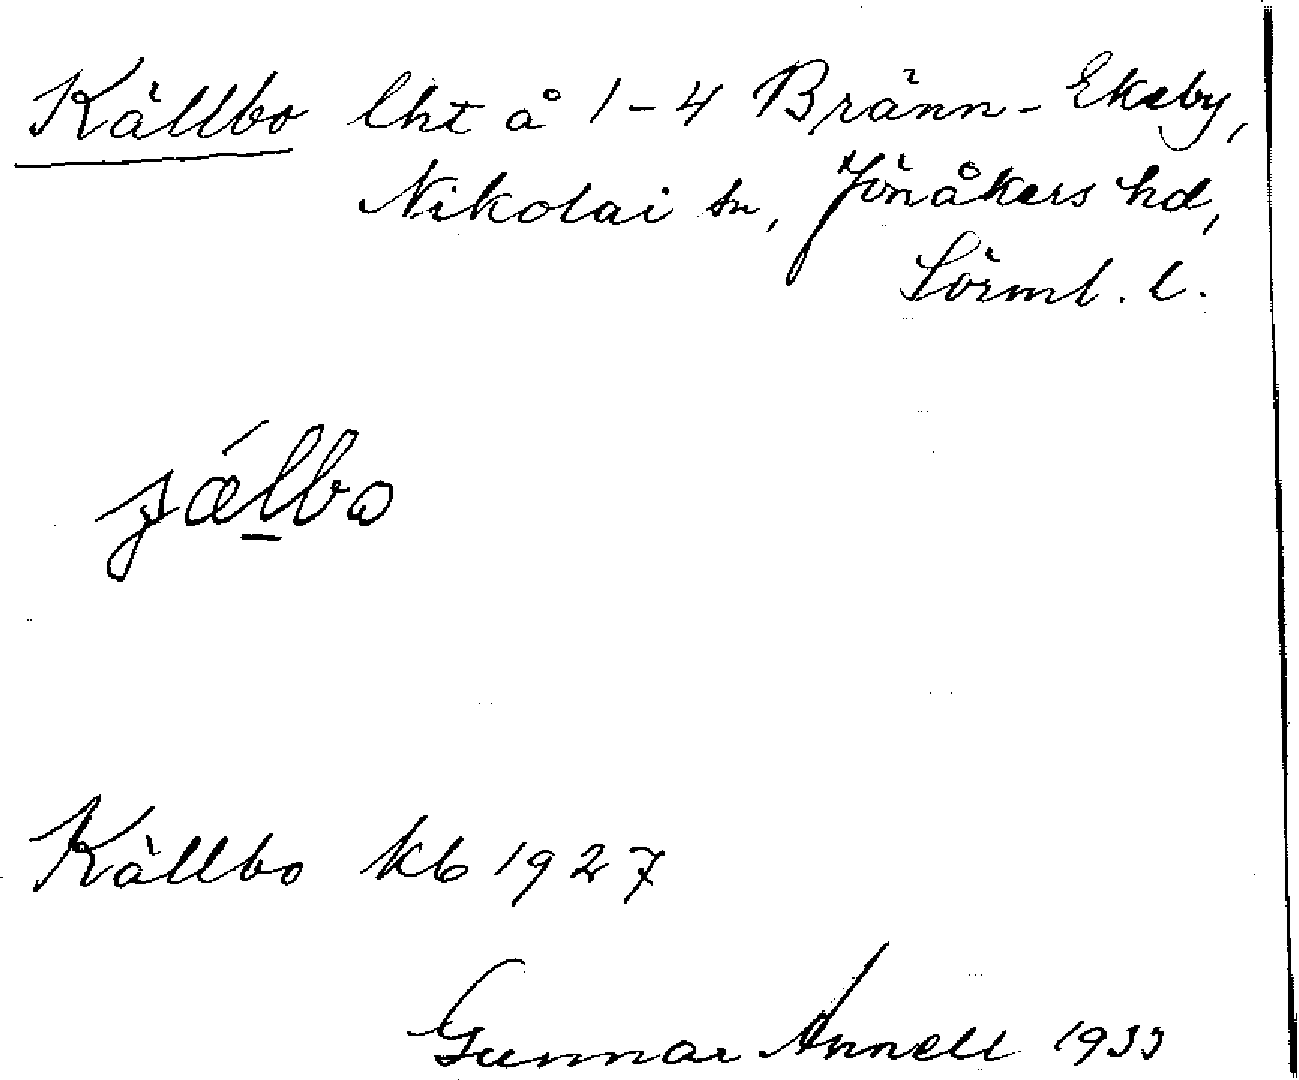 Källbo lht å 1-4 Bränn-Ekeby,
Nikolai sn, Jönåkers hd,
Sörml. l.
Källbo kb 1927
Gunnar Annell 1933